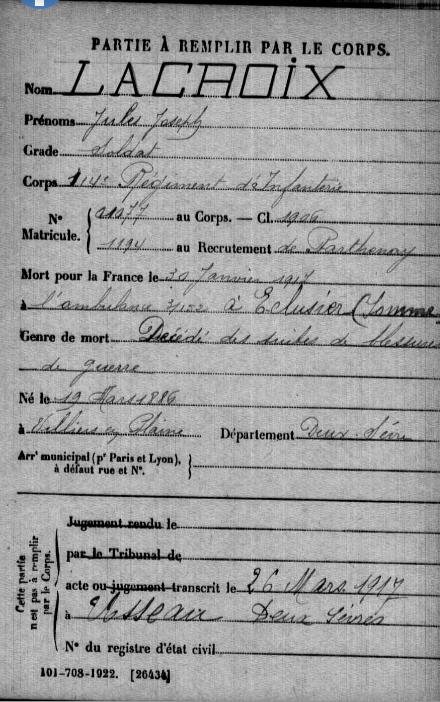 PARTIE À REMPLIR PAR LE CORPS.
Nom LACROIX
Prénoms Jules Joseph
Grade Soldat
Corps 114e Régiment d'Infanterie
N° Matricule. { 11977 au Corps. — Cl. 1906
1194 au Recrutement de Parthenay
Mort pour la France le 30 Janvier 1917
à l'ambulance 3/152 à Eclusier (Somme
Genre de mort Décédé des suites de blessures
de guerre
Né le 19 Mars 1886
à Villiers en Plaine Département Deux-Sèvres
Arrt municipal (pr Paris et Lyon), à défaut rue et N°. }
Cette partie n'est pas à remplir par le Corps.
Jugement rendu le
par le Tribunal de
acte ou jugement transcrit le 26 Mars 1917
à Usseau Deux Sèvres
N° du registre d'état civil
101-708-1922. [26434]